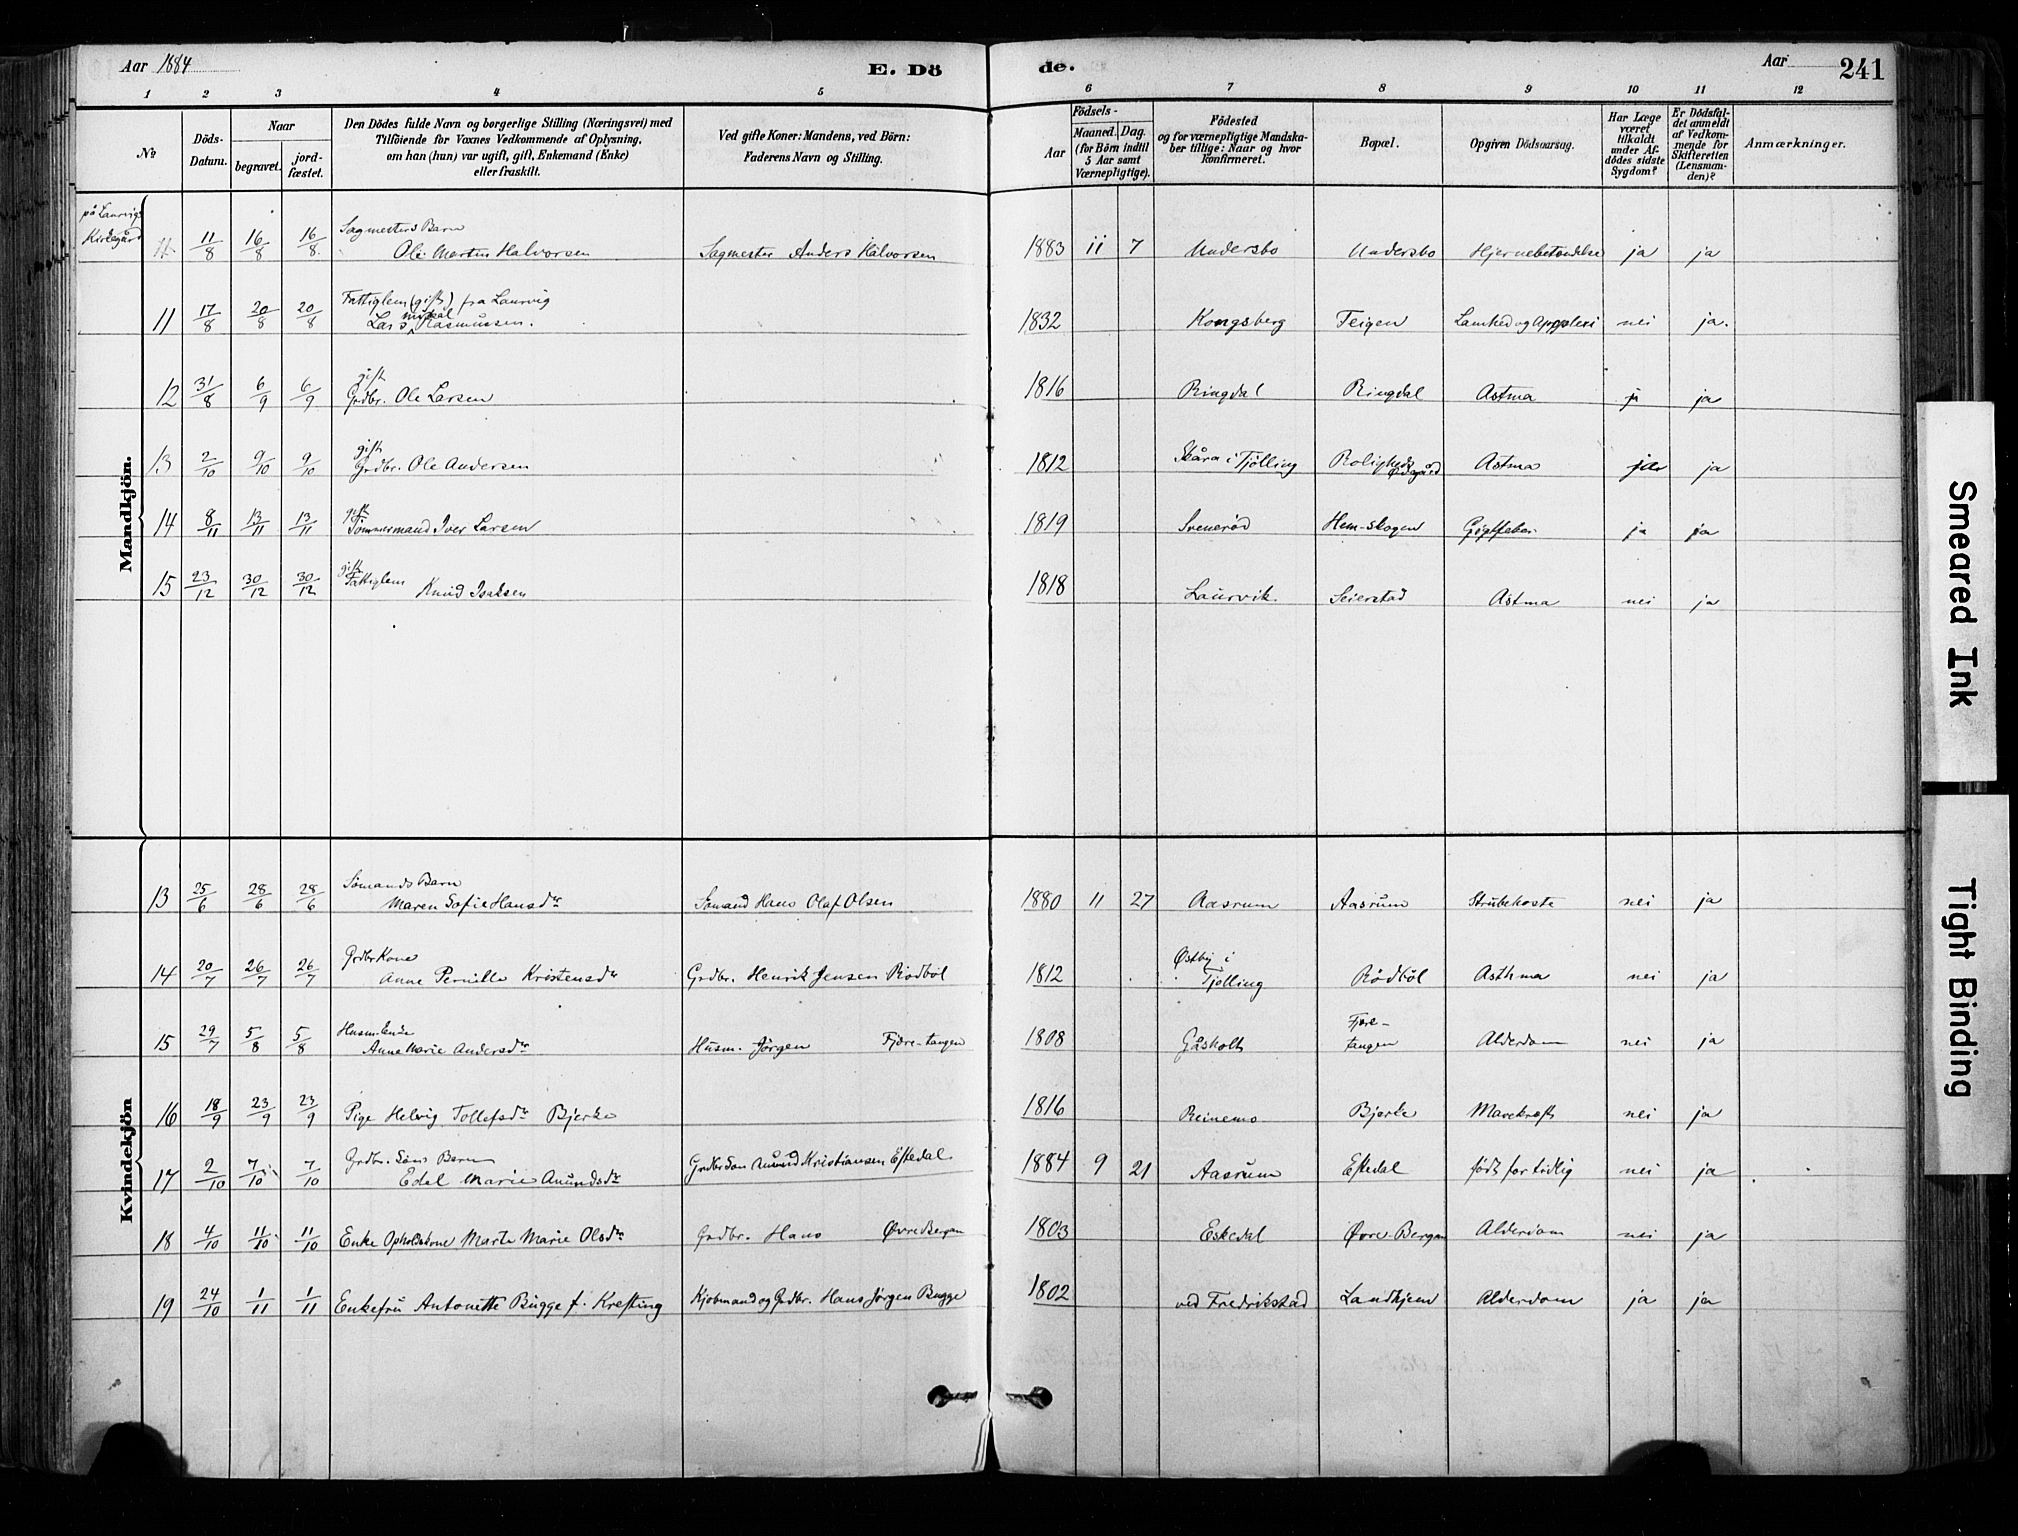 Aar 1884
E. Dö
de.
Aar
241
1 2 3 4 5 6 7 8 9 10 11 12
№
Döds-
Datum.
Naar
begravet.
jord-
fæstet.
Den Dödes fulde Navn og borgerlige Stilling (Næringsvei) med
Tilföiende for Voxnes Vedkommende af Oplysning,
om han (hun) var ugift, gift, Enkemand (Enke)
eller fraskilt.
Ved gifte Koner: Mandens, ved Börn:
Faderens Navn og Stilling.
Födsels-
Aar
Maaned. Dag.
(for Börn indtil
5 Aar samt
Værnepligtige).
Födested
og for værnepligtige Mandska-
ber tillige: Naar og hvor
konfirmeret.
Bopæl.
Opgiven Dödsaarsag.
Har Læge
været
tilkaldt
under Af-
dödes sidste
Sygdom?
Er Dödsfal-
det anmeldt
af Vedkom-
mende for
Skifteretten
(Lensman-
den)?
Anmærkninger.
Mandkjön.
på Laurvigs
Kirkegård
11/8 16/8 16/8 Sagmesters Barn
Ole Martin Halvorsen Sagmester Anders Halvorsen 1883 11 7 Undersbo Undersbo Hjernebetændelse ja ja
Fattiglem (gift) fra Laurvig
11 17/8 20/8 20/8 Lars Rasmussen. 1832 Kongsberg Feigen Lamhed og Apoplexi nei ja.
gift
12 31/8 6/9 6/9 Grdbr. Ole Larsen 1816 Ringdal Ringdal Astma ja
gift
13 2/10 9/10 9/10 Grdbr. Ole Andersen 1812 Skåra i Tjølling Roligheds Ødegård Astma ja ja
gift
14 8/11 13/11 13/11 Tømmermand Iver Larsen 1819 Svenerød Hem-skogen Gigtfeber ja ja
gift
15 23/12 30/12 30/12 Fattiglem Knud Isaksen 1818 Laurvik Seierstad Astma nei ja
Kvindekjön
Sømands Barn
13 25/6 28/6 28/6 Maren Sofie Hansdtr Sømand Hans Olaf Olsen 1880 11 27 Aasrum Aasrum Strubehoste nei ja
Grdbr Kone
14 20/7 26/7 26/7 Anne Pernille Kristensdtr Grdbr. Henrik Jensen Rödböl 1812 Østby i Tjølling Rödböl Asthma nei ja
15 29/7 5/8 5/8 Anne Marie Andersdtr Husm. Jörgen Fjære-tangen 1808 Gåsholt Fjære-tangen Alderdom nei ja
16 18/9 23/9 23/9 Pige Helvig Tollefsdtr Bjerke 1816 Reinemo Bjerke Mavekræft nei ja
Grdbr. Søns Barn
17 2/10 7/10 7/10 Edel Marie Anundsdtr Grdbr Søn Anund Kristiansen Eftedal 1884 9 21 Aasrum Eftedal født for tidlig nei ja
18 4/10 11/10 11/10 Enke Opholdskone Marte Marie Olsdtr Grdbr. Hans Øvre Bergan 1803 Eskedal Øvre-Bergan Alderdom nei ja
19 24/10 1/11 1/11 Enkefru Antonette Bugge f. Krefting Kjøbmand og Grdbr. Hans Jørgen Bugge 1802 ved Fredrikstad Landhjem Alderdom ja ja
Smeared Ink
Tight Binding